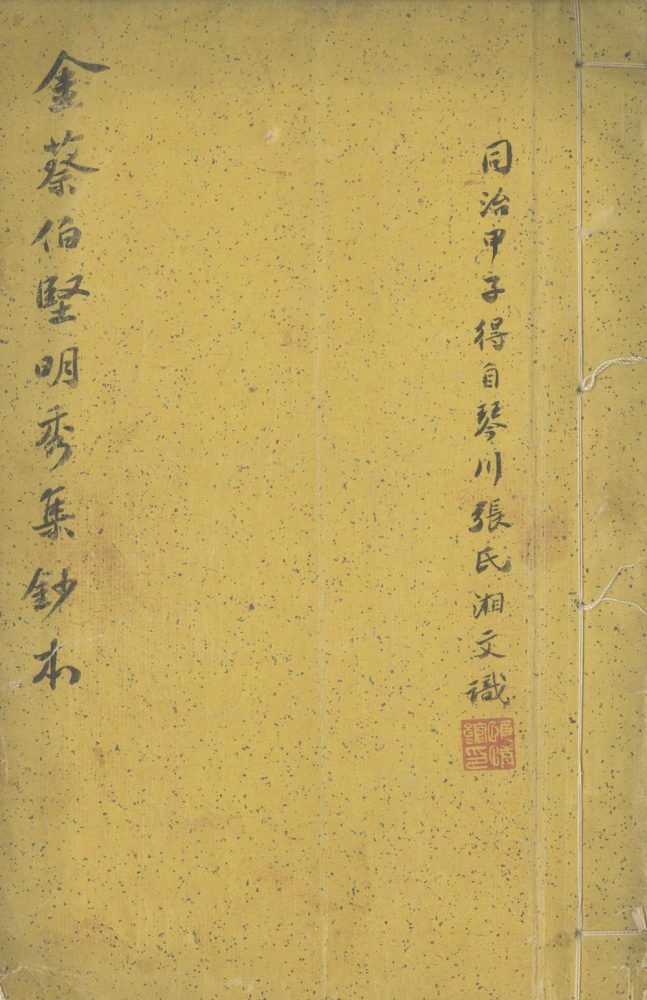 同治甲子得自琴川張氏湘文識
金蔡伯堅明秀集鈔本